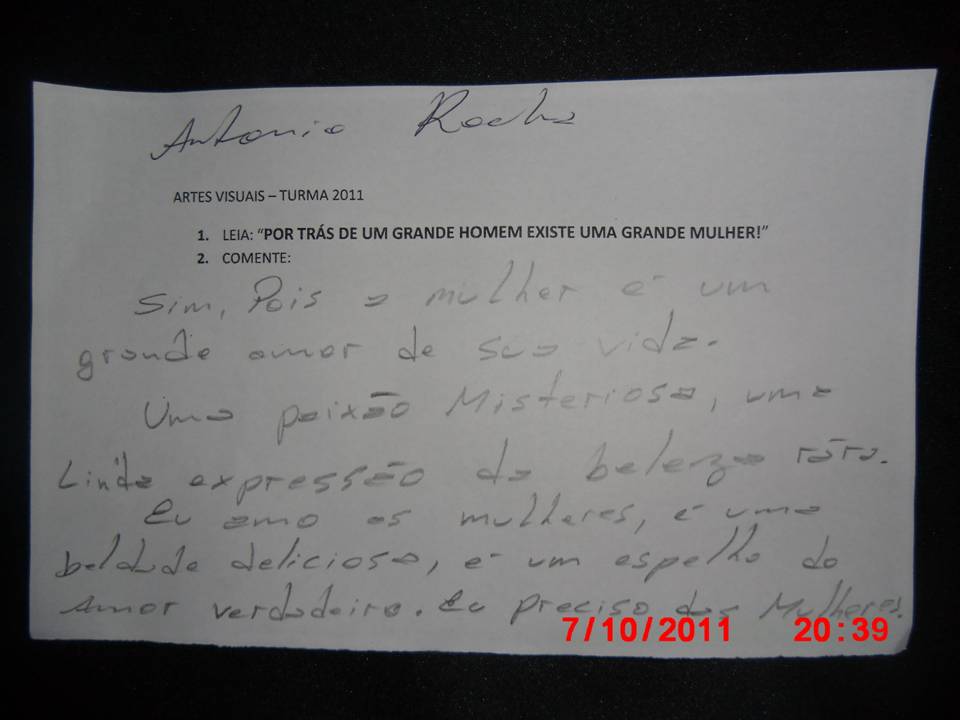 Antonio Rocha
ARTES VISUAIS – TURMA 2011
1. LEIA: “POR TRÁS DE UM GRANDE HOMEM EXISTE UMA GRANDE MULHER!”
2. COMENTE:
Sim, Pois a mulher é um
grande amor de sua vida.
Uma paixão Misteriosa, uma
Linda expressão da beleza rára.
Eu amo as mulheres, é uma
beldade deliciosa, é um espelho do
Amor verdadeiro. Eu preciso das Mulheres.
7/10/2011 20:39